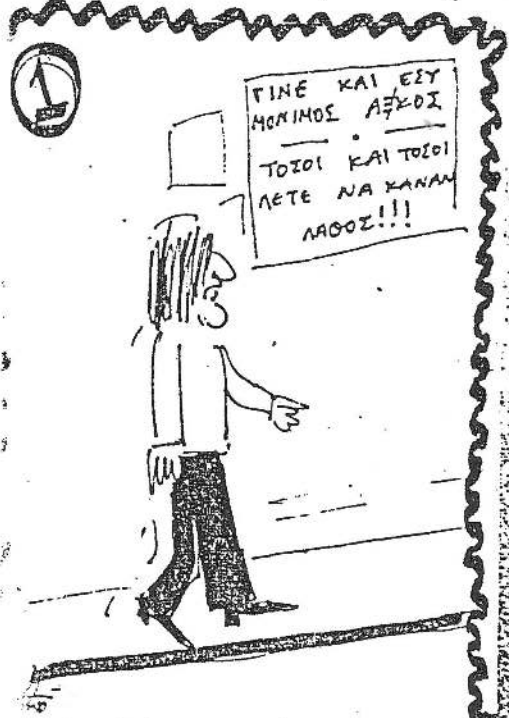 1
ΓΙΝΕ ΚΑΙ ΕΣΥ
ΜΟΝΙΜΟΣ ΑΞ/ΚΟΣ
ΤΟΣΟΙ ΚΑΙ ΤΟΣΟΙ
ΛΕΤΕ ΝΑ ΚΑΝΑΝ
ΛΑΘΟΣ!!!